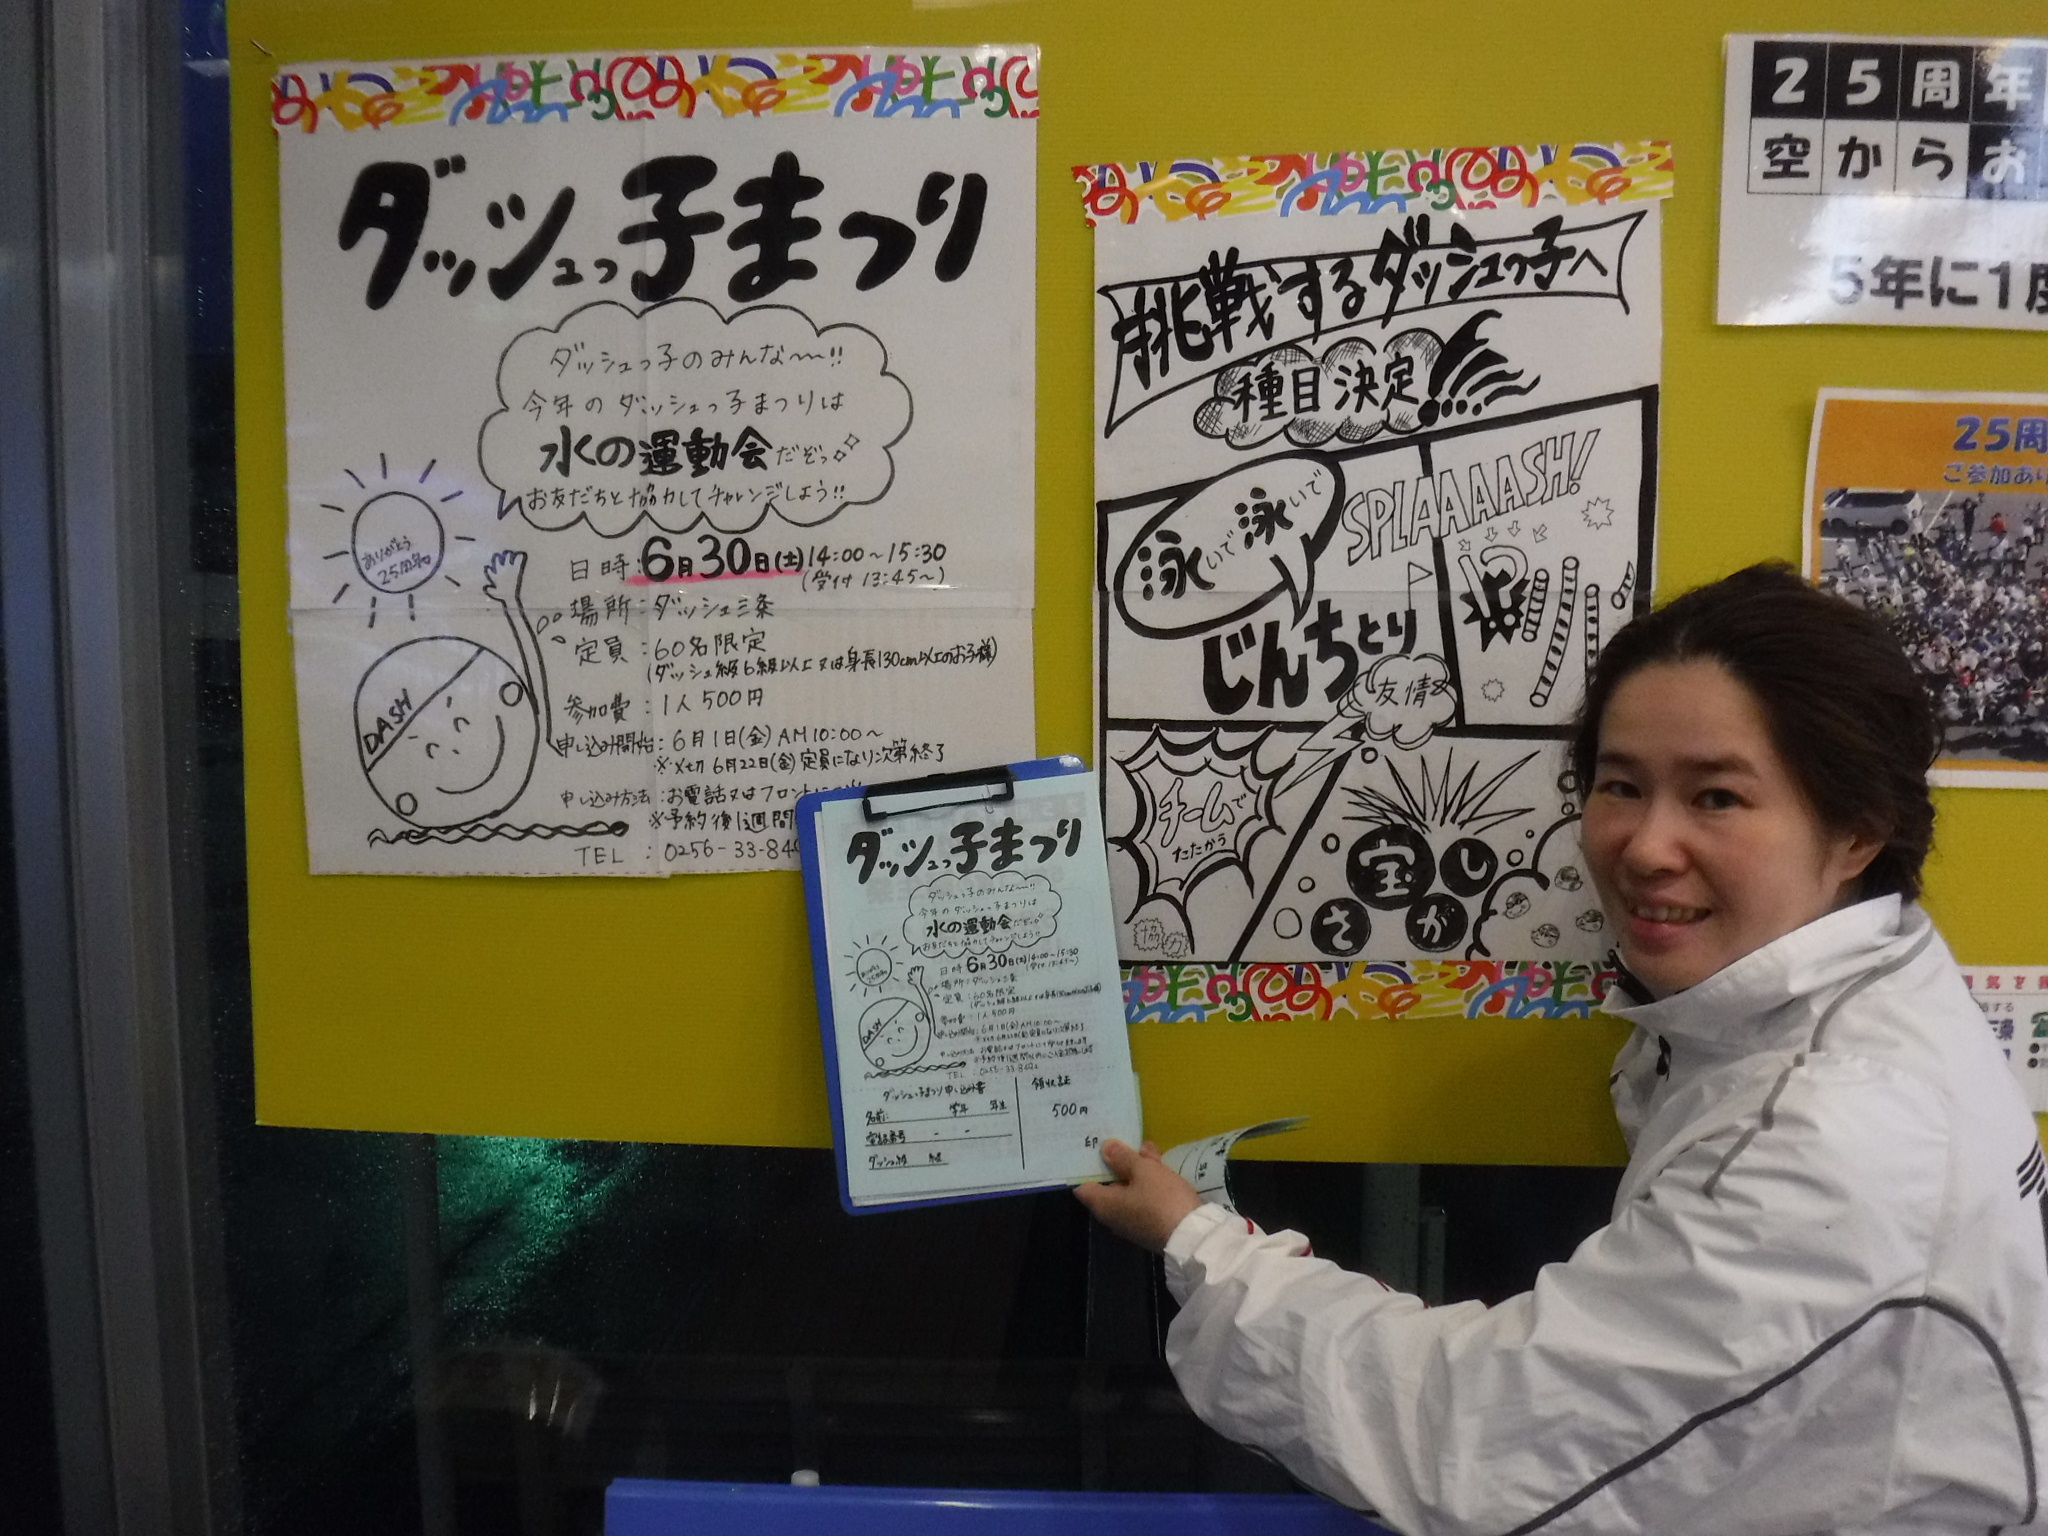 ダッシュっ子まつり
ダッシュっ子のみんな〜〜!!
今年のダッシュっ子まつりは
水の運動会だぞっ
お友だちと協力してチャレンジしよう!!
ありがとう
25周年
DASH
日時:6月30日(土)14:00〜15:30
(受付13:45〜)
場所:ダッシュ三条
定員:60名限定
(ダッシュ級6級以上又は身長130cm以上のお子様)
参加費:1人500円
申し込み開始:6月1日(金)AM10:00〜
※〆切6月22日(金)定員になり次第終了
申し込み方法:お電話又はフロントに
※予約後1週間
TEL:0256-33-84
挑戦するダッシュっ子へ
種目決定!!!
泳いで泳いで
じんちとり
SPLAAAASH!
!?
友情
チームで
たたかう
協力
宝さがし
25周年
空からお
5年に1度
25周
ご参加あり
ダッシュっ子まつり
ダッシュっ子のみんな〜〜!!
今年のダッシュっ子まつりは
水の運動会だぞっ
お友だちと協力してチャレンジしよう!!
DASH
日時 6月30日(土)14:00〜15:30
(受付13:45〜)
場所:ダッシュ三条
定員:60名限定
(ダッシュ級6級以上又は身長130cm以上のお子様)
参加費:1人500円
申し込み開始:6月1日(金)AM10:00〜
※〆切6月22日(金)定員になり次第終了
TEL:0256-33-84
ダッシュっ子まつり申し込み書
名前: 学年 年生
電話番号 - -
ダッシュ級 級
領収証
500円
印